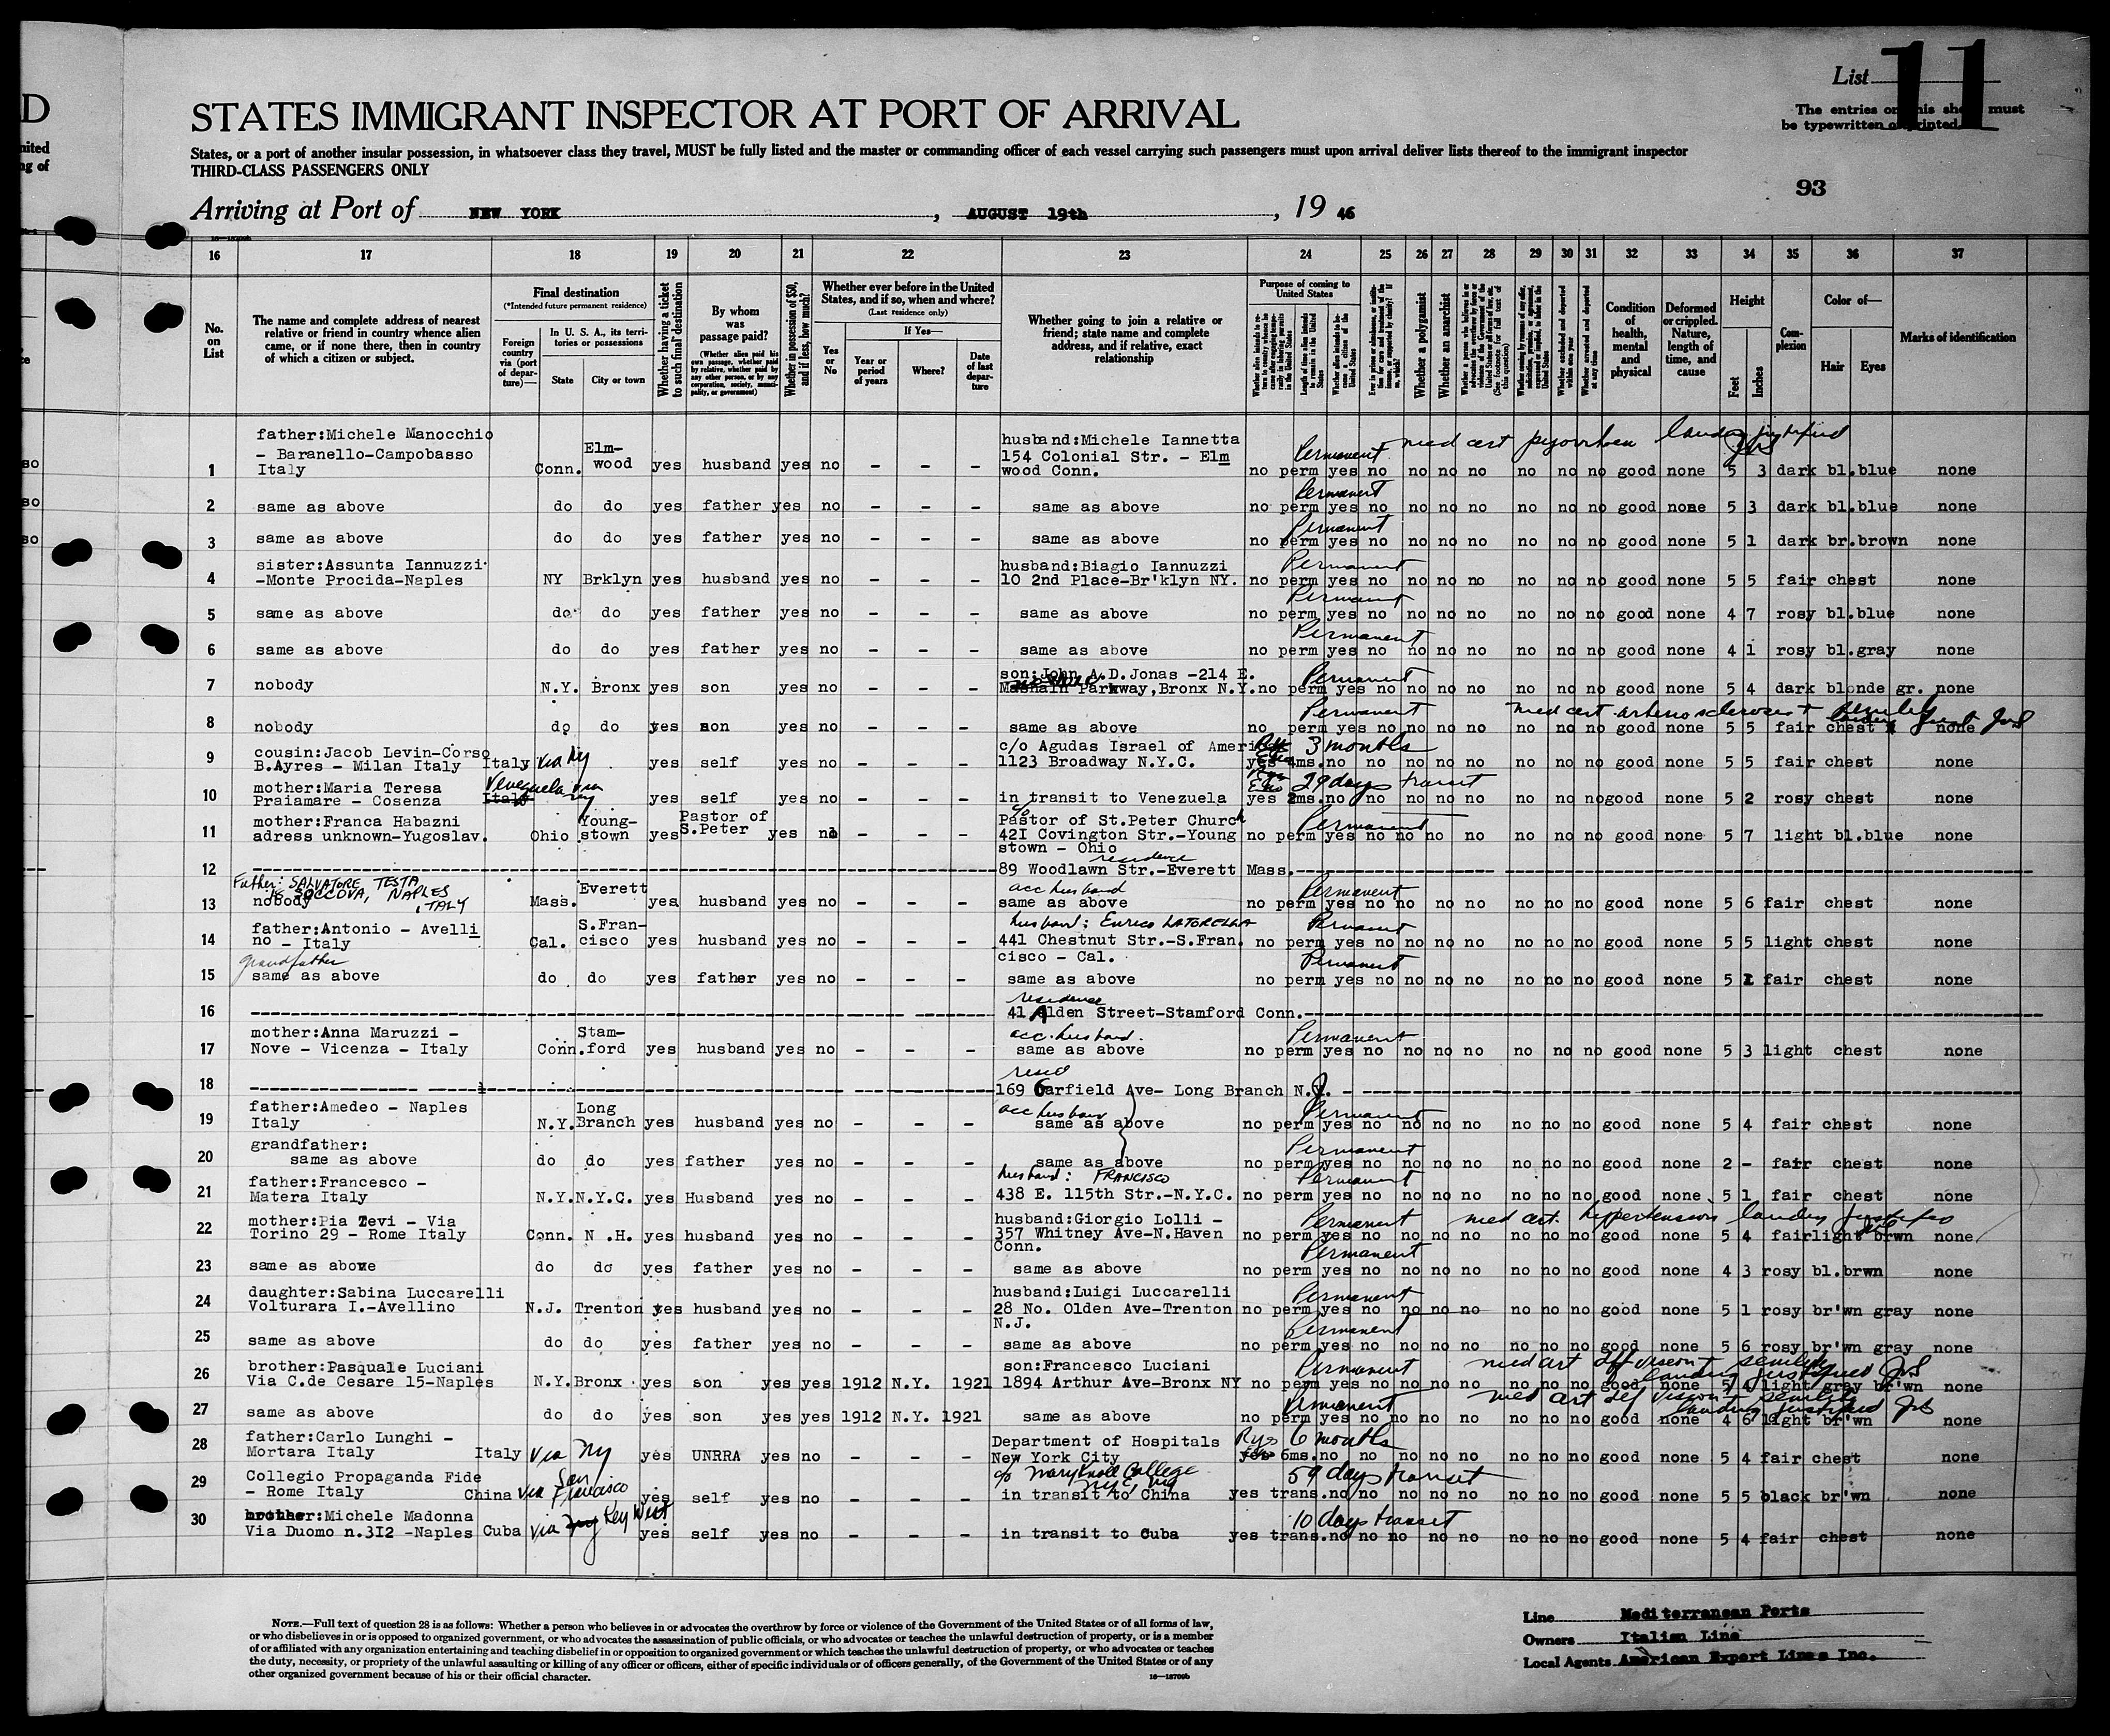 List 11
D
STATES IMMIGRANT INSPECTOR AT PORT OF ARRIVAL
The entries on this sheet must
be typewritten or printed
nited
ng of
States, or a port of another insular possession, in whatsoever class they travel, MUST be fully listed and the master or commanding officer of each vessel carrying such passengers must upon arrival deliver lists thereof to the immigrant inspector
THIRD-CLASS PASSENGERS ONLY
93
Arriving at Port of NEW YORK, AUGUST 19th, 19 46
16 17 18 19 20 21 22 23 24 25 26 27 28 29 30 31 32 33 34 35 36 37
No. on List
The name and complete address of nearest relative or friend in country whence alien came, or if none there, then in country of which a citizen or subject.
Final destination
(*Intended future permanent residence)
Foreign country via (port of departure)—
In U. S. A., its territories or possessions
State
City or town
Whether having a ticket to such final destination
By whom was passage paid?
(Whether alien paid his own passage, whether paid by relative, whether paid by any other person, or by any corporation, society, municipality, or government)
Whether in possession of $50, and if less, how much?
Whether ever before in the United States, and if so, when and where?
(Last residence only)
Yes or No
If Yes—
Year or period of years
Where?
Date of last departure
Whether going to join a relative or friend; state name and complete address, and if relative, exact relationship
Purpose of coming to United States
Whether a polygamist
Whether an anarchist
Condition of health, mental and physical
Deformed or crippled. Nature, length of time, and cause
Height
Feet
Inches
Complexion
Color of—
Hair
Eyes
Marks of identification
med cert pyorrhoea landing justified
father:Michele Manocchio Elm- husband:Michele Iannetta Permanent
- Baranello-Campobasso wood 154 Colonial Str. - Elm
1 Italy Conn. yes husband yes no - - - wood Conn. no perm yes no no no no no no no good none 5 3 dark bl.blue none
Permanent
2 same as above do do yes father yes no - - - same as above no perm yes no no no no no no no good none 5 3 dark bl.blue none
Permanent
3 same as above do do yes father yes no - - - same as above no perm yes no no no no no no no good none 5 1 dark br.brown none
sister:Assunta Iannuzzi husband:Biagio Iannuzzi Permanent
4 -Monte Procida-Naples NY Brklyn yes husband yes no - - - 10 2nd Place-Br'klyn NY. no perm yes no no no no no no no good none 5 5 fair chest none
Permanent
5 same as above do do yes father yes no - - - same as above no perm yes no no no no no no no good none 4 7 rosy bl.blue none
Permanent
6 same as above do do yes father yes no - - - same as above no perm yes no no no no no no no good none 4 1 rosy bl.gray none
son:John A.D.Jonas -214 E. Permanent
7 nobody N.Y. Bronx yes son yes no - - - Parkway,Bronx N.Y. no perm yes no no no no no no no good none 5 4 dark blonde gr. none
Permanent med cert arteriosclerosis + senility
8 nobody do do yes son yes no - - - same as above no perm yes no no no no no no no good none 5 5 fair chest none
cousin:Jacob Levin-Corso c/o Agudas Israel of America 3 months
9 B.Ayres - Milan Italy Italy via NY yes self yes no - - - 1123 Broadway N.Y.C. yes 4ms.no no no no no no no no good none 5 5 fair chest none
mother:Maria Teresa Venezuela via NY 29 days transit
10 Praiamare - Cosenza Italy yes self yes no - - - in transit to Venezuela yes 2ms.no no no no no no no no good none 5 2 rosy chest none
mother:Franca Habazni Young- Pastor of c/o Pastor of St.Peter Church Permanent
11 adress unknown-Yugoslav. Ohio stown yes S.Peter yes no - - 421 Covington Str.-Young no perm yes no no no no no no no good none 5 7 light bl.blue none
stown - Ohio
residence
12 89 Woodlawn Str.-Everett Mass.
Father: SALVATORE TESTA
SOCCOVA, NAPLES ITALY Everett acc husband Permanent
13 nobody Mass. yes husband yes no - - - same as above no perm yes no no no no no no no good none 5 6 fair chest none
father:Antonio - Avelli S.Fran- husband: Enrico LATORELLA Permanent
14 no - Italy Cal. cisco yes husband yes no - - - 441 Chestnut Str.-S.Fran. no perm yes no no no no no no no good none 5 5 light chest none
grandfather cisco - Cal. Permanent
15 same as above do do yes father yes no - - - same as above no perm yes no no no no no no no good none 5 fair chest none
residence
16 41 Alden Street-Stamford Conn.
mother:Anna Maruzzi - Stam- acc. husband. Permanent
17 Nove - Vicenza - Italy Conn.ford yes husband yes no - - - same as above no perm yes no no no no no no no good none 5 3 light chest none
resid
18 169 Garfield Ave- Long Branch N.J.
father:Amedeo - Naples Long acc husband Permanent
19 Italy N.Y. Branch yes husband yes no - - - same as above no perm yes no no no no no no no good none 5 4 fair chest none
grandfather: Permanent
20 same as above do do yes father yes no - - - same as above no perm yes no no no no no no no good none 2 - fair chest none
father:Francesco - husband: FRANCISCO Permanent
21 Matera Italy N.Y. N.Y.C. yes Husband yes no - - - 438 E. 115th Str.-N.Y.C. no perm yes no no no no no no no good none 5 1 fair chest none
mother:Pia Zevi - Via husband:Giorgio Lolli - Permanent med cert. hypertension landing justified
22 Torino 29 - Rome Italy Conn. N .H. yes husband yes no - - - 357 Whitney Ave-N.Haven no perm yes no no no no no no no good none 5 4 fair light brwn none
Conn. Permanent
23 same as above do do yes father yes no - - - same as above no perm yes no no no no no no no good none 4 3 rosy bl.brwn none
daughter:Sabina Luccarelli husband:Luigi Luccarelli Permanent
24 Volturara I.-Avellino N.J. Trenton yes husband yes no - - - 28 No. Olden Ave-Trenton no perm yes no no no no no no no good none 5 1 rosy br'wn gray none
N.J. Permanent
25 same as above do do yes father yes no - - - same as above no perm yes no no no no no no no good none 5 6 rosy br'wn gray none
brother:Pasquale Luciani son:Francesco Luciani Permanent med cert def vision + senility landing justified
26 Via C.de Cesare 15-Naples N.Y. Bronx yes son yes yes 1912 N.Y. 1921 1894 Arthur Ave-Bronx NY no perm yes no no no no no no no good none 5 4 light gray br'wn none
Permanent med cert def vision + senility landing justified
27 same as above do do yes son yes yes 1912 N.Y. 1921 same as above no perm yes no no no no no no no good none 4 6 light br'wn none
father:Carlo Lunghi - Department of Hospitals 6 months
28 Mortara Italy Italy via NY yes UNRRA yes no - - - New York City yes 6ms.no no no no no no no no good none 5 4 fair chest none
Collegio Propaganda Fide c/o Maryknoll College 59 days transit
29 - Rome Italy China via San Francisco yes self yes no - - - in transit to China yes trans.no no no no no no no no good none 5 5 black br'wn none
brother:Michele Madonna 10 days transit
30 Via Duomo n.312 -Naples Cuba via Key West yes self yes no - - - in transit to Cuba yes trans.no no no no no no no no good none 5 4 fair chest none
NOTE.—Full text of question 28 is as follows: Whether a person who believes in or advocates the overthrow by force or violence of the Government of the United States or of all forms of law,
or who disbelieves in or is opposed to organized government, or who advocates the assassination of public officials, or who advocates or teaches the unlawful destruction of property, or is a member
of or affiliated with any organization entertaining and teaching disbelief in or opposition to organized government or which teaches the unlawful destruction of property, or who advocates or teaches
the duty, necessity, or propriety of the unlawful assaulting or killing of any officer or officers, either of specific individuals or of officers generally, of the Government of the United States or of any
other organized government because of his or their official character.
16—18709b
Line Mediterranean Ports
Owners Italian Line
Local Agents American Export Lines Inc.